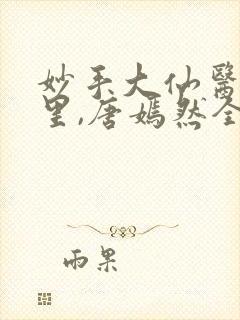 妙手大仙醫
里,唐嫣然全
雨果